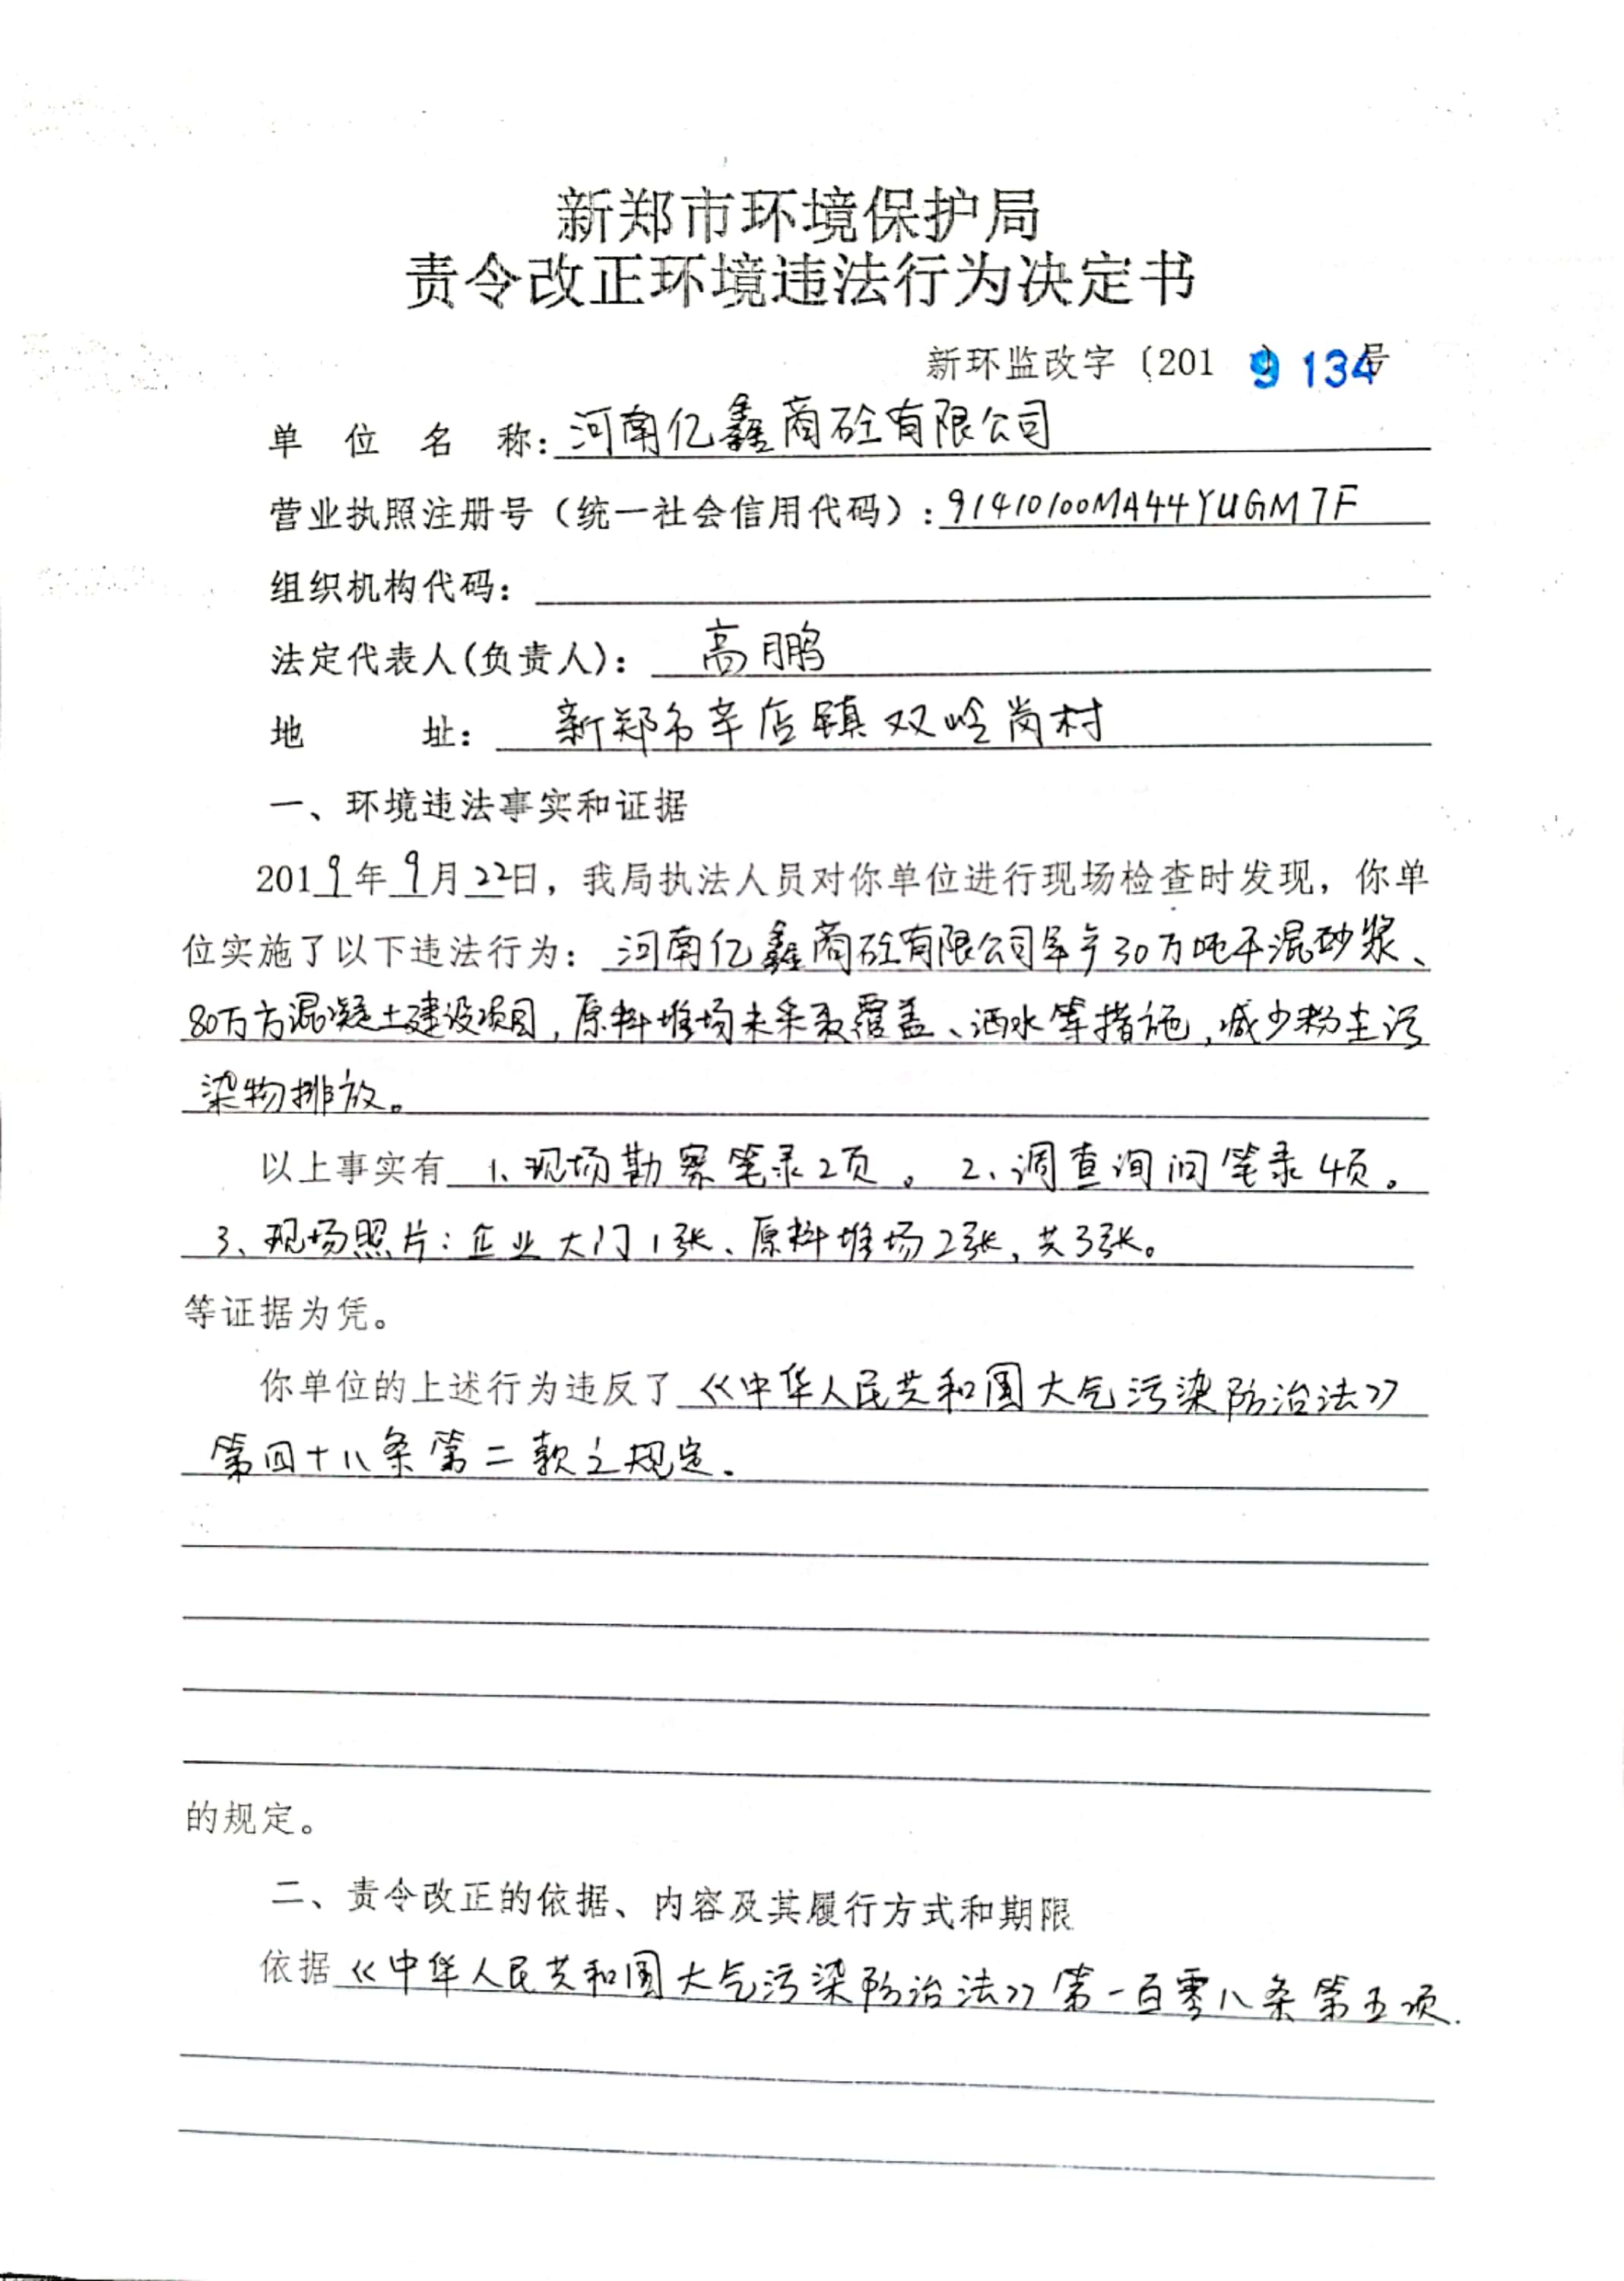 新郑市环境保护局
责令改正环境违法行为决定书
新环监改字〔2019〕134号
单 位 名 称：河南亿鑫商砼有限公司
营业执照注册号（统一社会信用代码）：91410100MA44YUGM7F
组织机构代码：
法定代表人(负责人)：高鹏
地 址：新郑市辛店镇双岭岗村
一、环境违法事实和证据
2019年9月22日，我局执法人员对你单位进行现场检查时发现，你单
位实施了以下违法行为：河南亿鑫商砼有限公司年产30万吨干混砂浆、
80万方混凝土建设项目，原料堆场未采取覆盖、洒水等措施，减少粉尘污
染物排放。
以上事实有 1、现场勘察笔录2页。2、调查询问笔录4页。
3、现场照片：企业大门1张、原料堆场2张，共3张。
等证据为凭。
你单位的上述行为违反了《中华人民共和国大气污染防治法》
第四十八条第二款之规定.
的规定。
二、责令改正的依据、内容及其履行方式和期限
依据《中华人民共和国大气污染防治法》第一百零八条第五项.